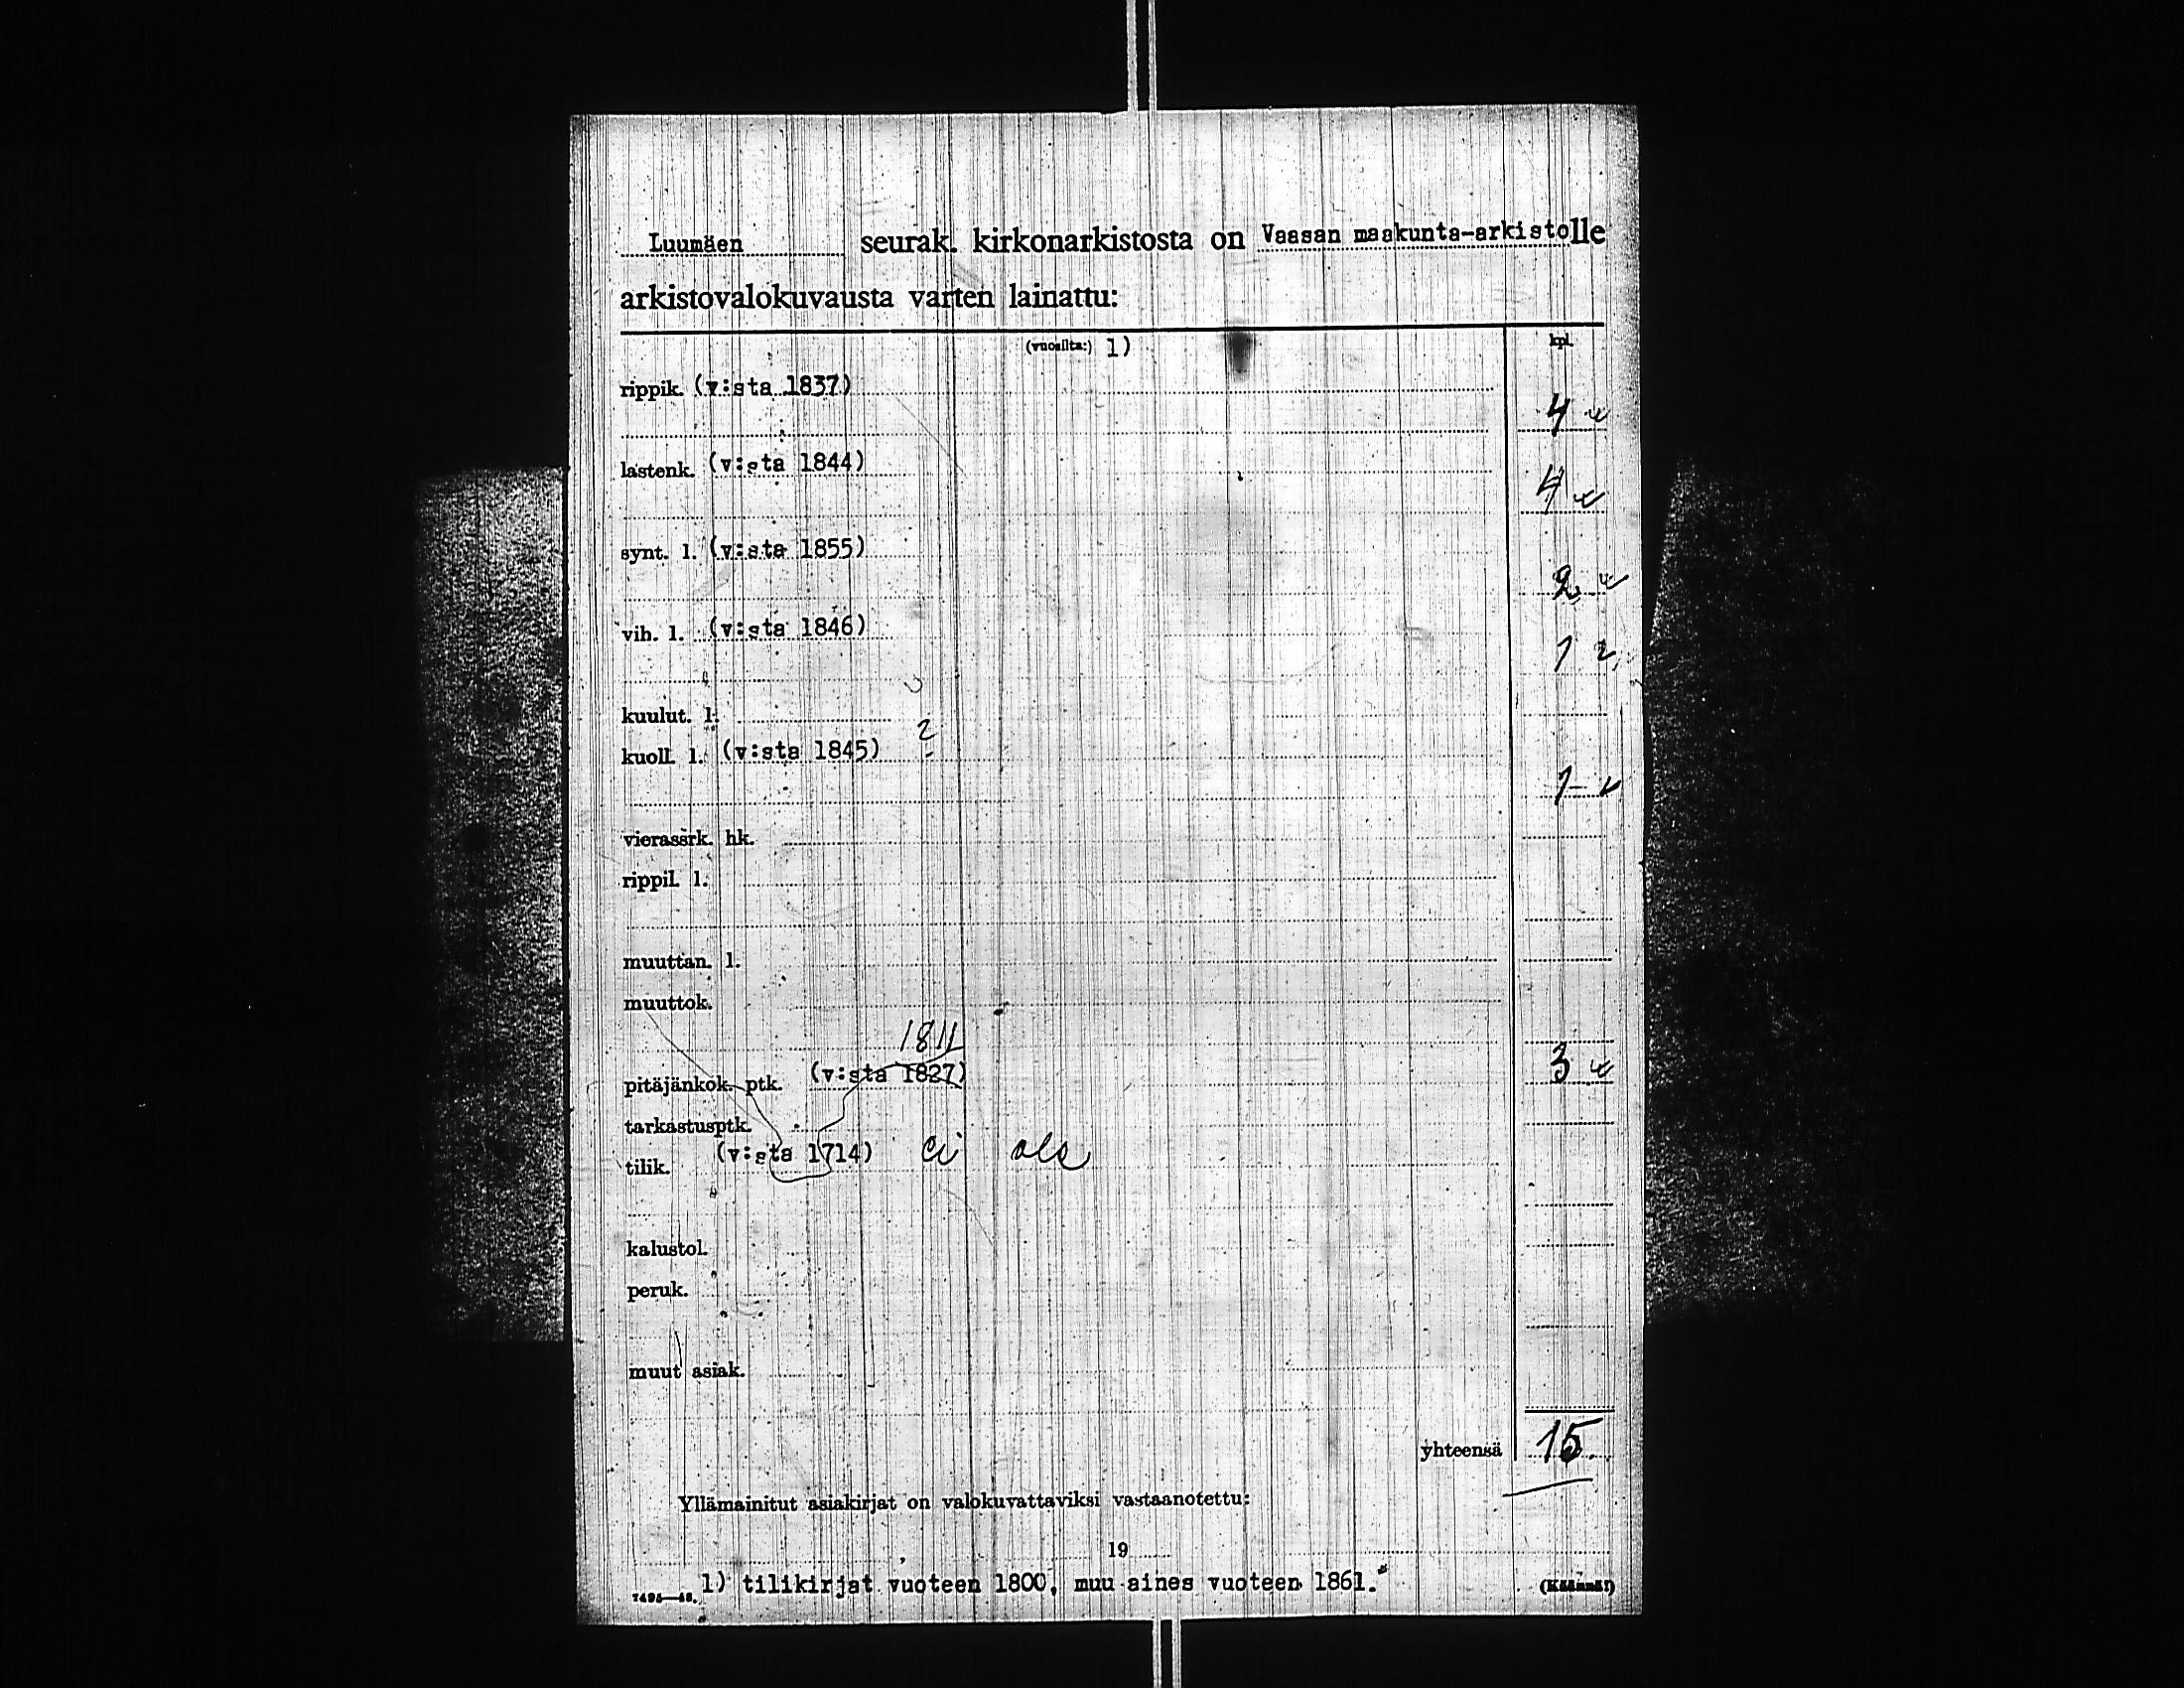 Luumäen seurak. kirkonarkistosta on Vaasan maakunta-arkistolle
arkistovalokuvausta varten lainattu:
(vuosilta:) 1) kpl.
rippik. (v:sta 1837)
4
lastenk. (v:sta 1844)
4
synt. l. (v:sta 1855)
2
vih. l. (v:sta 1846)
1
kuulut. l.
kuoll. l. (v:sta 1845) ?
1
vierassrk. hk.
rippil. l.
muuttan. l.
muuttok.
1811
pitäjänkok. ptk. (v:sta 1827) 3
tarkastusptk.
tilik. (v:sta 1714) ei ole
kalustol.
peruk.
muut asiak.
yhteensä 15.
Yllämainitut asiakirjat on valokuvattaviksi vastaanotettu:
19
1) tilikirjat vuoteen 1800, muu aines vuoteen 1861.
7495—48. (Käännä!)